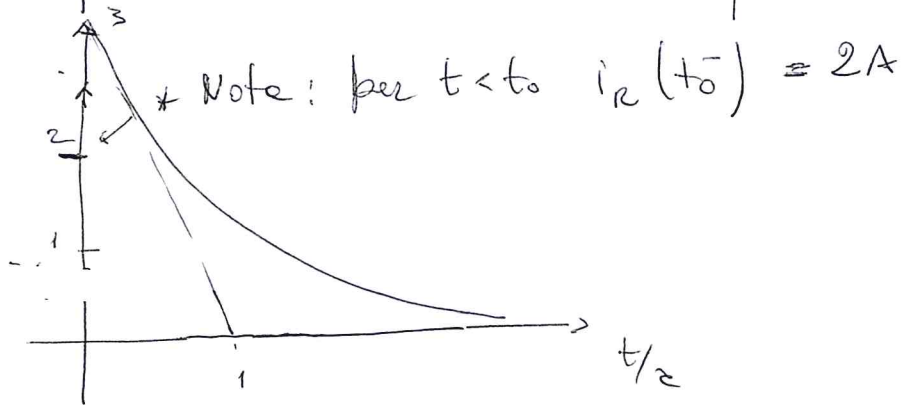 3
* Note: per t < t₀ i_R (t₀⁻) = 2A
2
1
1
t/τ